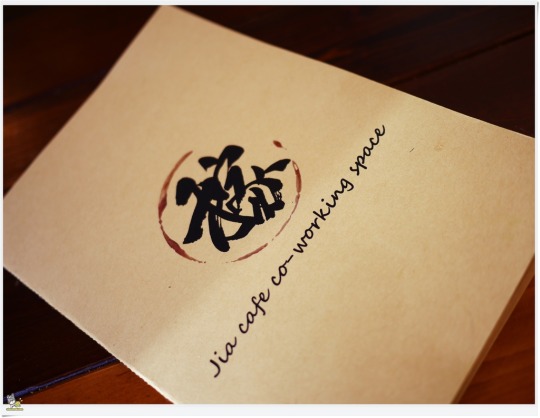 稼
Jia cafe co-working space